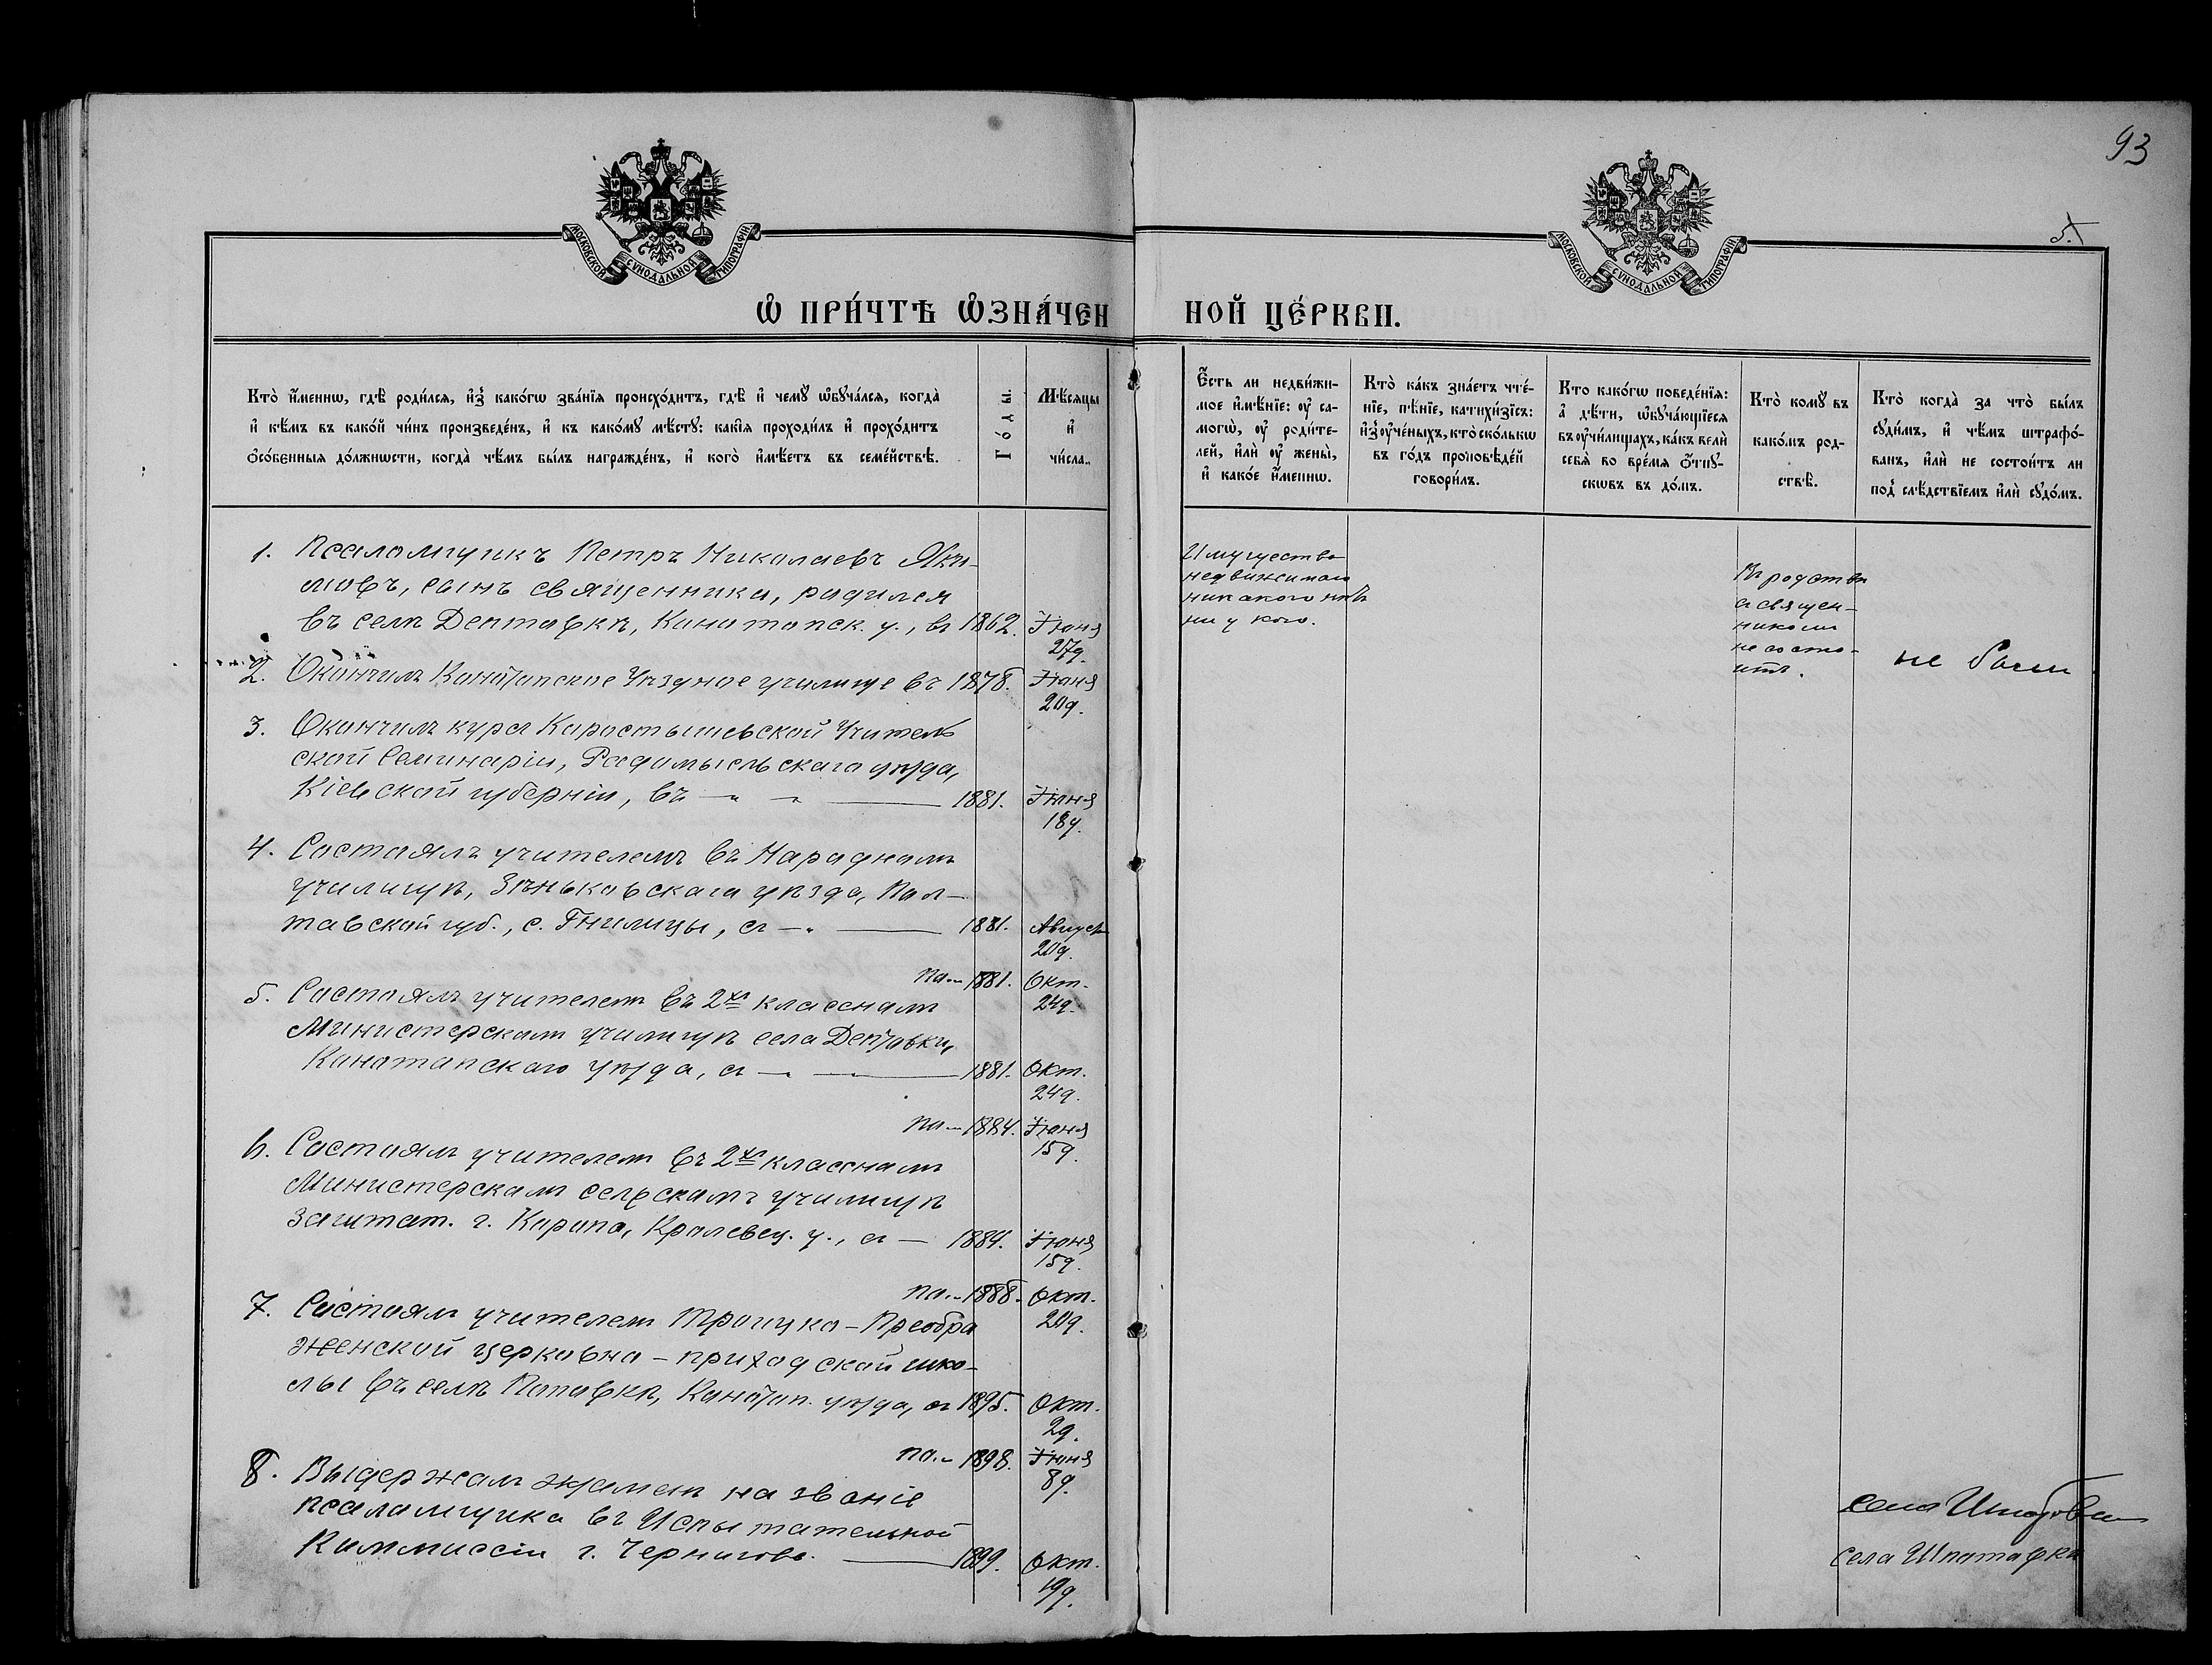 93
5.
МОСКОВСКОЙ СѴНОДАЛЬНОЙ ТИПОГРАФІИ
МОСКОВСКОЙ СѴНОДАЛЬНОЙ ТИПОГРАФІИ
Ѽ ПРИ́ЧТѢ Ѽ҆ЗНА́ЧЕННОЙ ЦЕ́РКВИ.
Кто̀ и҆́меннѡ, гдѣ̀ роди́лся, и҆з̾ како́гѡ зва́нїѧ происхо́дитъ, гдѣ̀ и҆ чемꙋ̀ ѡ҆бꙋча́лся, когда̀
и҆ кѣ́мъ въ како́й чи́нъ произведе́нъ, и҆ къ како́мꙋ мѣ́стꙋ: какі̑ѧ проходи́лъ и҆ прохо́дитъ
ѻ҆со́бенныѧ до́лжнѡсти, когда̀ чѣ́мъ бы́лъ награжде́нъ, и҆ кого̀ и҆мѣ́етъ въ семе́йствѣ.
Го́ды.
Мѣ́сяцы
и҆
чи́сла.
Е҆́сть ли недви́жи-
мое и҆мѣ́нїе: ᲂу҆ са-
могѡ̀, ᲂу҆ роди́те-
лей, и҆лѝ ᲂу҆ жены̀,
и҆ како́е и҆́меннѡ.
Кто̀ ка́къ зна́етъ чте́-
нїе, пѣ́нїе, катихи́зїсъ:
и҆з̾ ᲂу҆че́ныхъ, кто̀ ско́лькѡ
въ го́дъ проповѣ́дей
говори́лъ.
Кто како́гѡ поведе́нїѧ:
а҆ дѣ́ти, ѡ҆бꙋча́ющїеся
въ ᲂу҆чи́лищахъ, ка́къ велѝ
себѧ̀ во вре́мя ѻ҆тпꙋ-
скѡвъ въ до́мъ.
Кто̀ комꙋ̀ въ
како́мъ род-
ствѣ̀.
Кто̀ когда̀ за что̀ бы́лъ
сꙋди́мъ, и҆ чѣ́мъ штрафо́-
ванъ, и҆лѝ не состои́тъ ли
под̾ слѣ́дствїемъ и҆лѝ сꙋдо́мъ.
1. Псаломщикъ Петръ Николаевъ Яки-
мовъ, сынъ священника, родился
въ селѣ Дептовкѣ, Конотопск. у., въ 1862. Іюня
27д.
2. Окончилъ Конотопское Уѣздное училище въ 1878. Іюня
20д.
3. Окончилъ курсъ Коростышевской Учитель
ской Семинаріи, Радомысльскаго уѣзда,
Кіевской губерніи, въ — „ — „ — 1881. Іюня
18д.
4. Состоялъ учителемъ въ Народномъ
училищѣ, Зѣньковскаго уѣзда, Пол-
тавской губ., с. Гнилицы, съ — „ — 1881. Август
20д.
по — 1881. Окт.
24д.
5. Состоялъ учителемъ въ 2хъ классномъ
Министерскомъ училищѣ села Дептовки,
Конотопскаго уѣзда, съ — „ — 1881. Окт.
24д.
по — 1884. Іюня
15д.
6. Состоялъ учителемъ въ 2хъ классномъ
Министерскомъ сельскомъ училищѣ
заштат. г. Коропа, Кролевец. у., съ — 1884. Іюня
15д.
по — 1888. Окт.
20д.
7. Состоялъ учителемъ Троицко-Преобра
женской церковно-приходской шко-
лы въ селѣ Поповкѣ, Конотоп. уѣзда, съ 1895. Окт.
2д.
по — 1898. Іюня
8д.
8. Выдержалъ экзаменъ на званіе
псаломщика въ Испытательной
Коммиссіи г. Чернигова. — 1899. Окт.
19д.
Имущества
недвижимаго
никакого нѣтъ
ни у кого.
Въ родствѣ
съ священ-
никомъ
не состо-
итъ.
не были
села
села Шпотовки